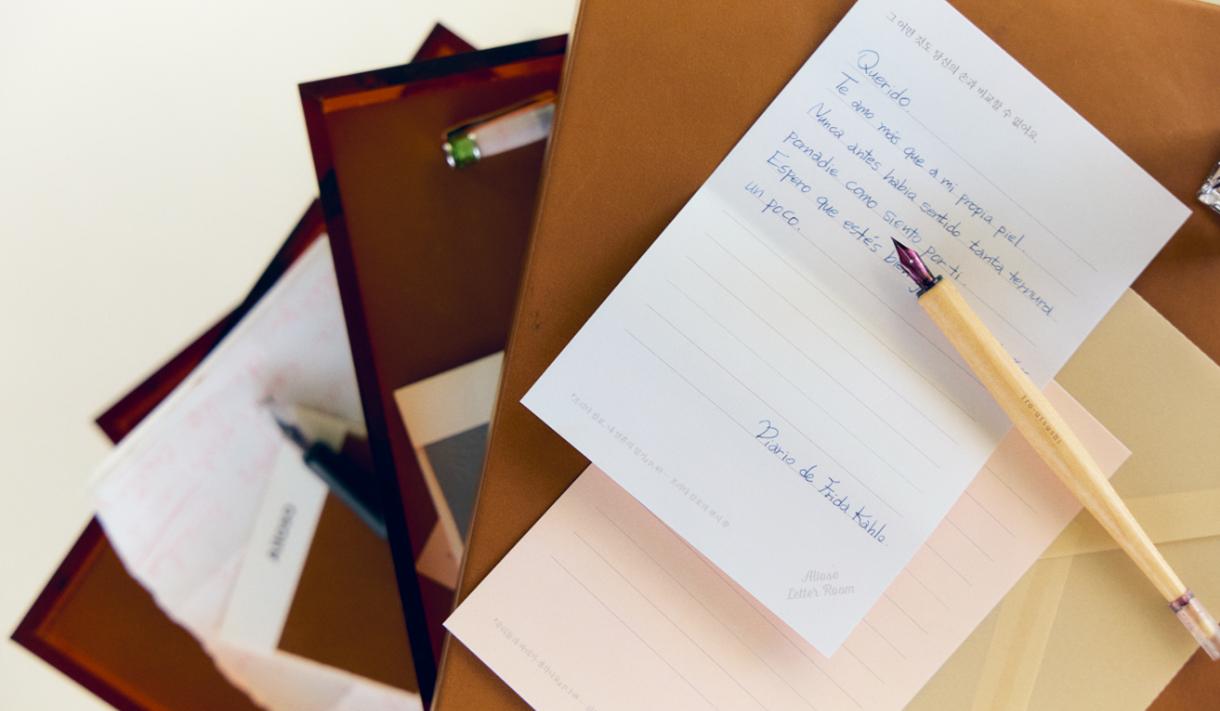 그 어떤 것도 당신의 손과 비교할 수 없어요.
Querido
Te amo más que a mi propia piel.
Nunca antes había sentido tanta ternura
panadie como siento por ti.
Espero que estés
un poco.
Diario de Frida Kahlo.
Aliase
Letter Room